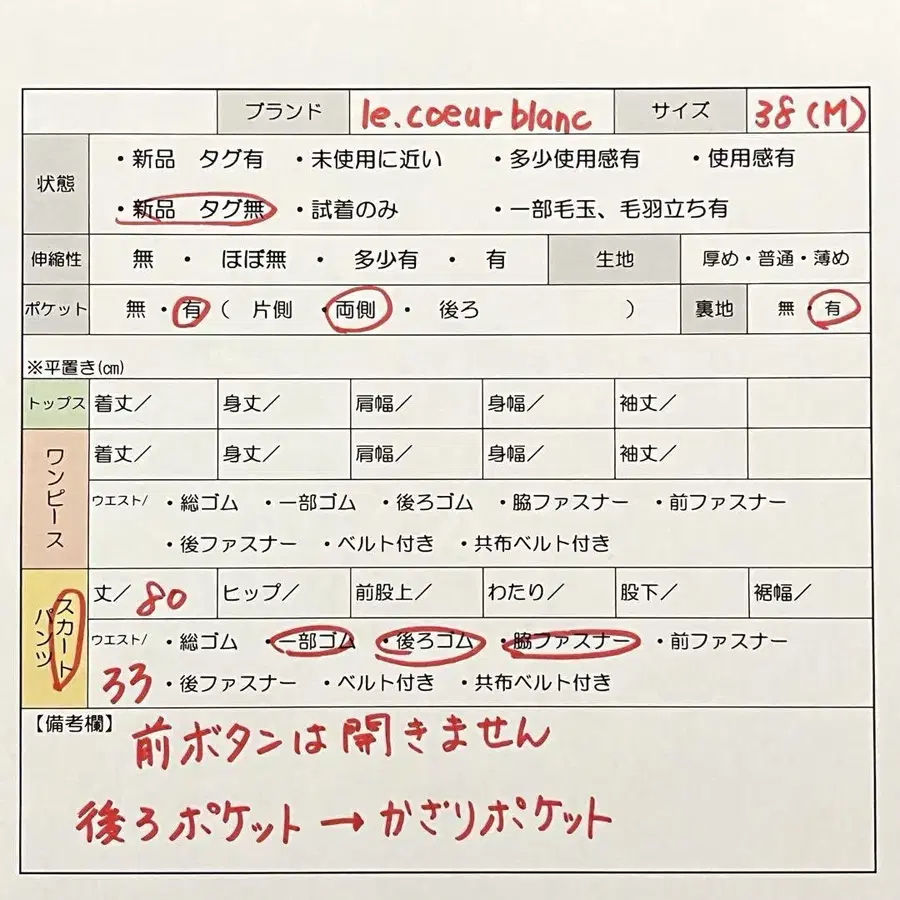 ブランド le.coeur blanc サイズ 38(M)
状態 ・新品 タグ有 ・未使用に近い ・多少使用感有 ・使用感有
・新品 タグ無 ・試着のみ ・一部毛玉、毛羽立ち有
伸縮性 無 ・ ほぼ無 ・ 多少有 ・ 有 生地 厚め・普通・薄め
ポケット 無・有( 片側 ・両側 ・ 後ろ ) 裏地 無・有
※平置き(㎝)
トップス 着丈／ 身丈／ 肩幅／ 身幅／ 袖丈／
ワンピース 着丈／ 身丈／ 肩幅／ 身幅／ 袖丈／
ウエスト/ ・総ゴム ・一部ゴム ・後ろゴム ・脇ファスナー ・前ファスナー
・後ファスナー ・ベルト付き ・共布ベルト付き
スカート パンツ 丈／ 80 ヒップ／ 前股上／ わたり／ 股下／ 裾幅／
ウエスト/ ・総ゴム ・一部ゴム ・後ろゴム ・脇ファスナー ・前ファスナー
33 ・後ファスナー ・ベルト付き ・共布ベルト付き
【備考欄】 前ボタンは開きません
後ろポケット→かざりポケット